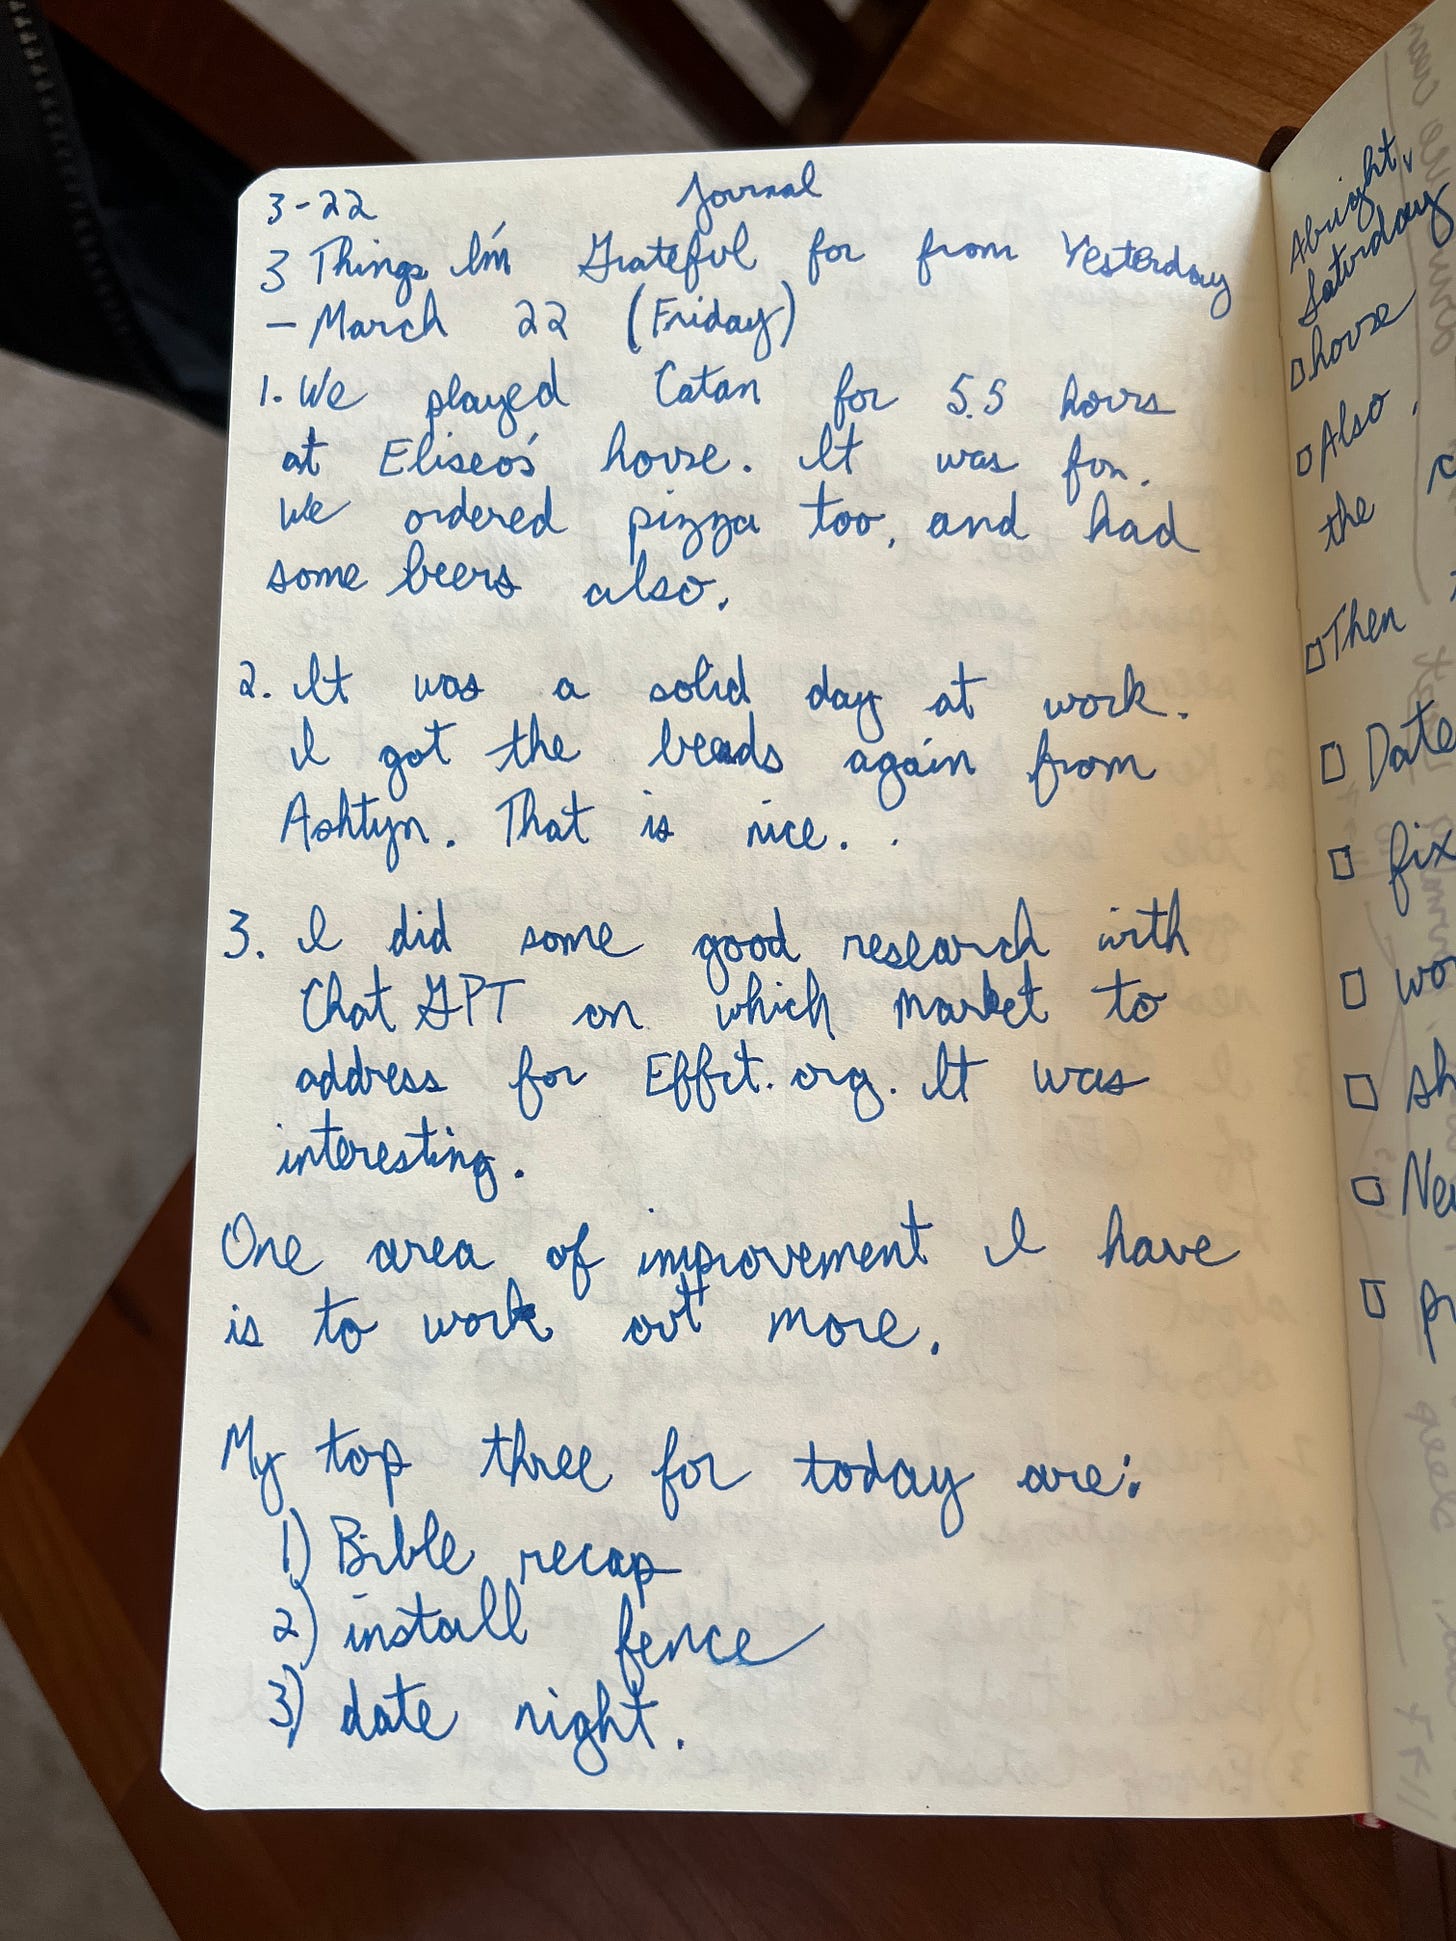 3-22 Journal
3 Things I'm Grateful for from Yesterday
- March 22 (Friday)
1. We played Catan for 5.5 hours
at Eliseo's house. It was fun.
We ordered pizza too, and had
some beers also.
2. It was a solid day at work.
I got the beads again from
Ashtyn. That is nice.
3. I did some good research with
Chat GPT on which market to
address for Effct.org. It was
interesting.
One area of improvement I have
is to work out more.
My top three for today are:
1) Bible recap
2) install fence
3) date night.
Alright,
Saturday
house
Also
the
Then
Date
fix